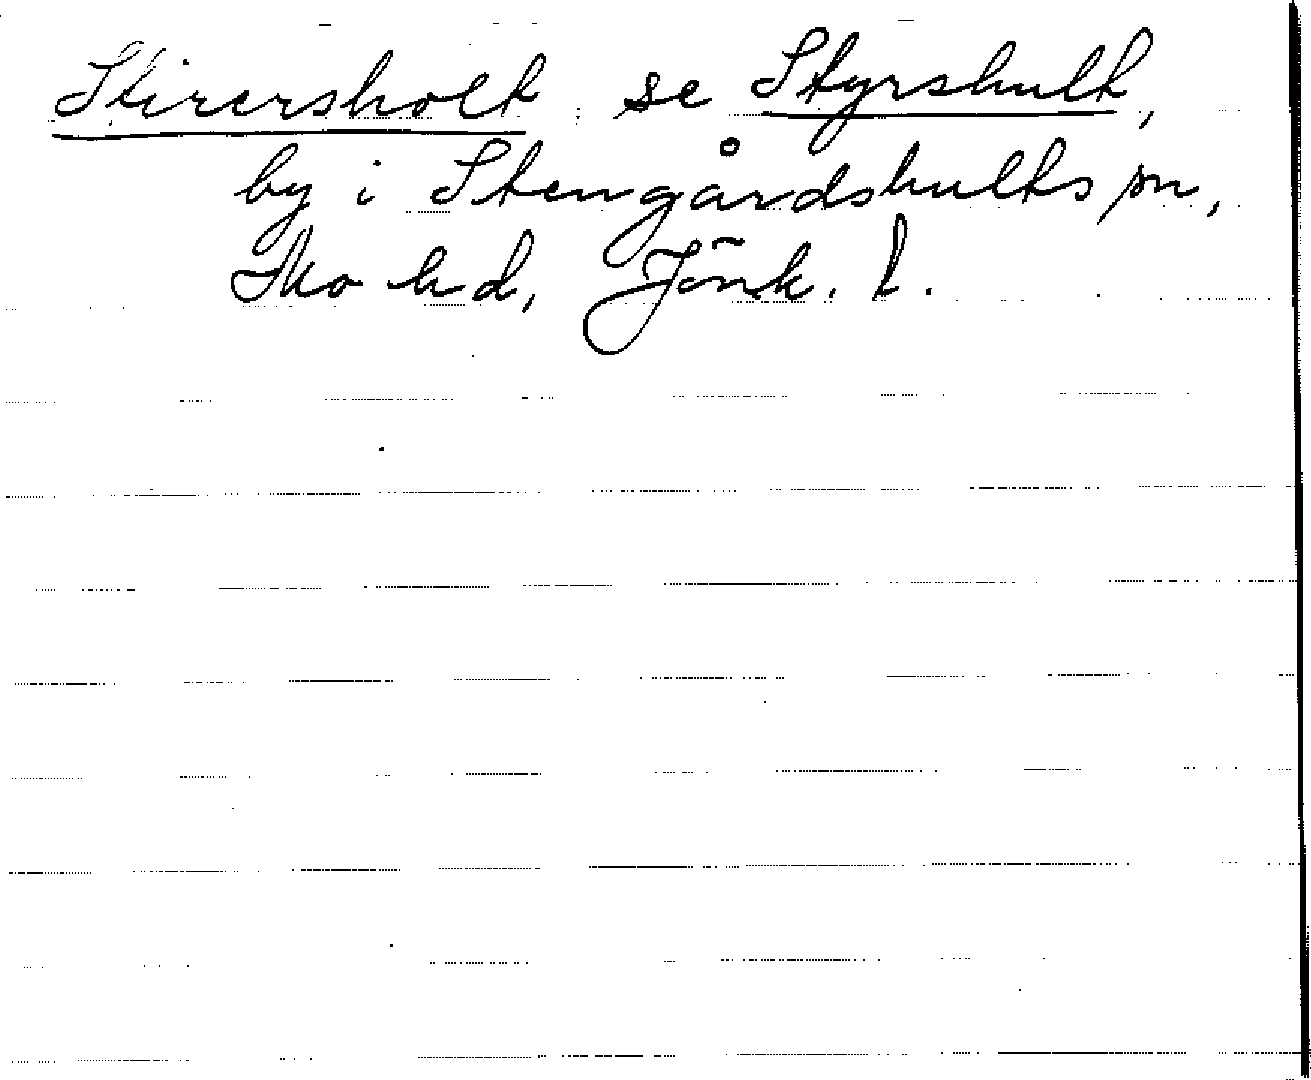 Stirersholt se Styrshult,
by i Stengårdshults sn,
Mo hd, Jönk. l.